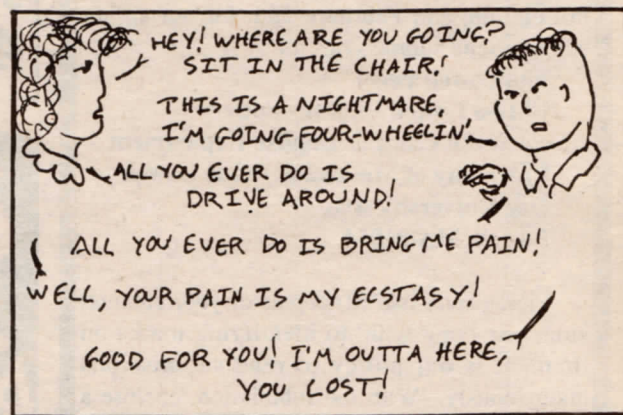 HEY! WHERE ARE YOU GOING?
SIT IN THE CHAIR!
THIS IS A NIGHTMARE,
I'M GOING FOUR-WHEELIN'.
ALL YOU EVER DO IS
DRIVE AROUND!
ALL YOU EVER DO IS BRING ME PAIN!
WELL, YOUR PAIN IS MY ECSTASY!
GOOD FOR YOU! I'M OUTTA HERE,
YOU LOST!